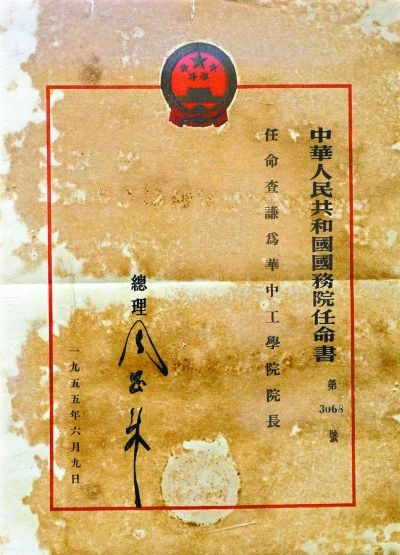 中華人民共和國國務院任命書
第
3068
號
任命查謙爲華中工學院院長
總理 周恩来
一九五五年六月九日